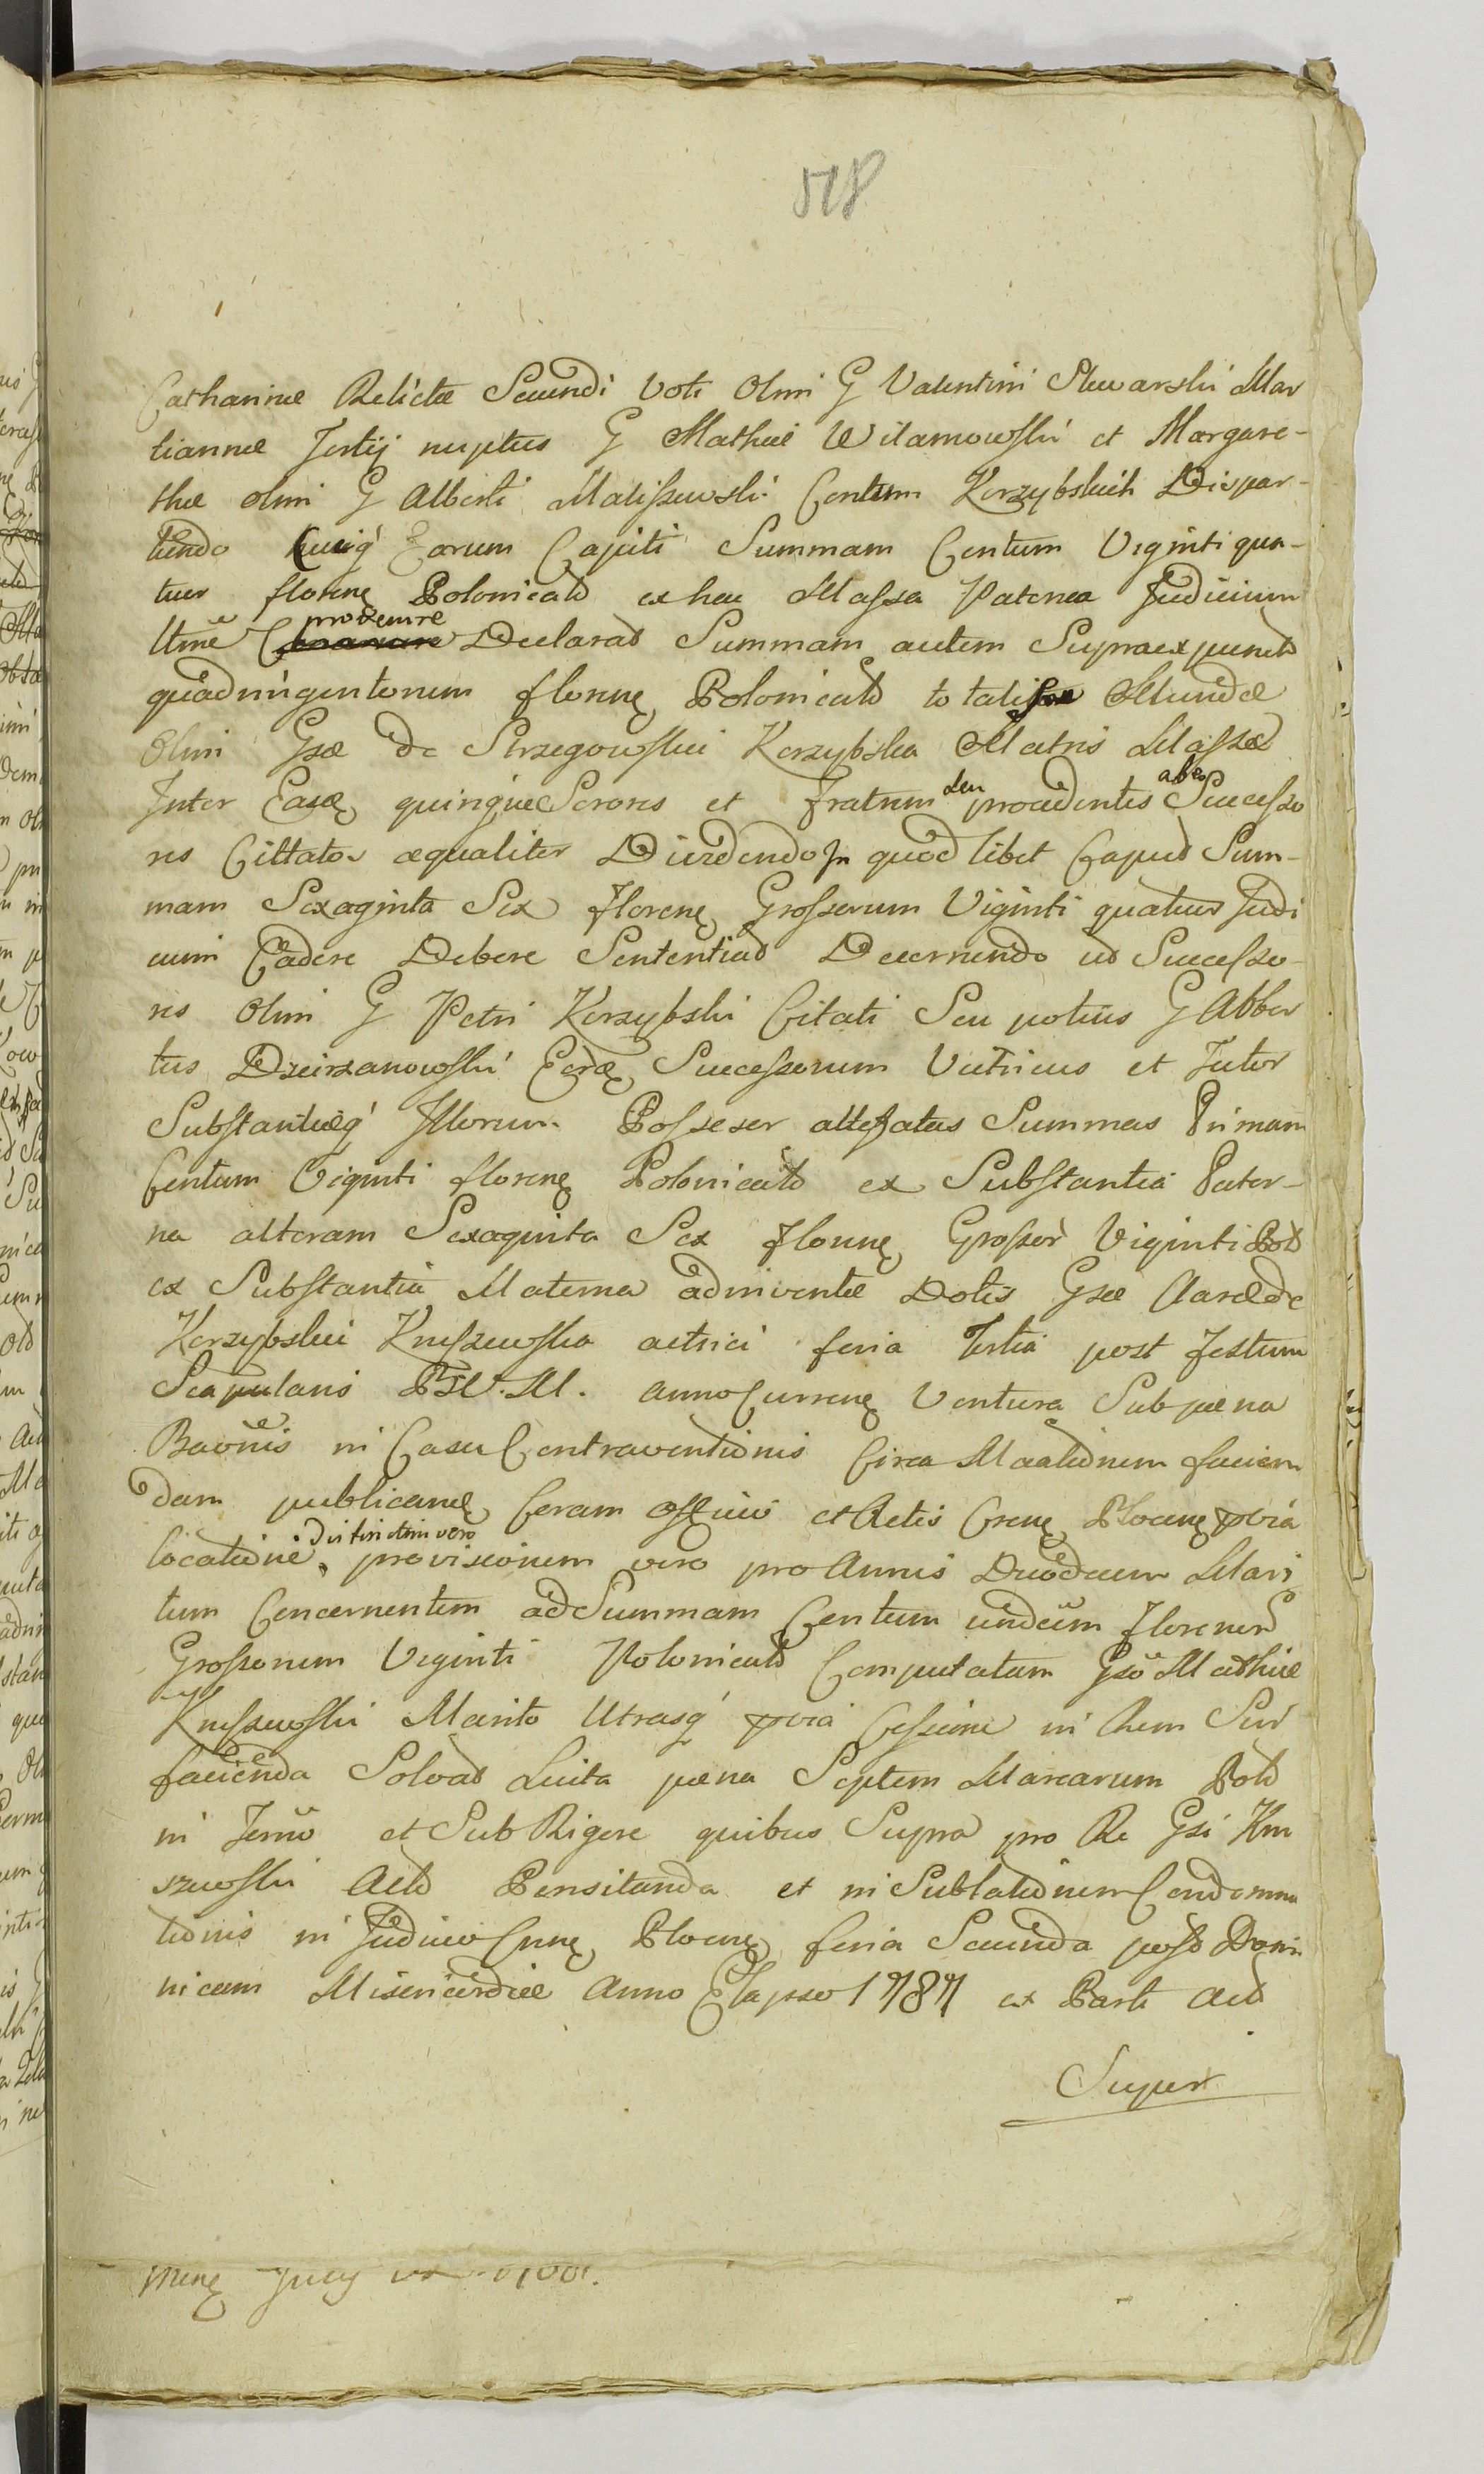 518
Catharinæ Relictæ Secundi Voti Olim G Valentini Skwarski Mar
tiannæ Tertij nuptus G Mathiæ Wilamowski et Margare-
thæ olim G Alberti Maliszewski Contum Korzybskich Dispar-
tiendo Cuiq́ Earum Capiti Summam Centum Viginti qua-
tuor florenę Polonicald ex hac Massa Paterna Judicium
provenire
Declarat Summam autem Supraexpunctd
quadringentorum florenę Polonicald totalis Mundæ
Olim Gsæ de Strzegowskie Korzybska Matris Massæ
Inter Easdę quinque Sorores et Fratrum seu procedentes ab eo Successo
res Cittatos æqualiter Dividendo In quod libet Caput Sum-
mam Sexaginta Sex florenę Grossorum Viginti quatuor Judi
cium Cadere Debere Sententiad Decernendo ud Successo-
res Olim G Petri Korzybski Citati Seu potius G Alber
tus Dzierzanowski Eordę Successorum Vitricus et Tutor
Substantiæq́ Illorum Possesor attestatas Summas Primam
Centum Viginti florenę Polonicald ex Substantia Pater-
na alteram Sexaginta Sex florenę Grossor Viginti Pold
ex Substantia Materna adinventæ Dotis Gsæ Claræ de
Korzybskie Kniszewska actrici feria Tertia post Festum
Scapularis B V. M. Anno Currenę Ventura Sub pæna
Baonis in Casu Contraventionis Circa Maationem facien
dam publicanę Coram officio et Actis Crenę Plocenę pvia
locatione, Distinctim vero provisionem vero pro Annis Duodecem Mari
tum Concernentem ad Summam Centum undecim florenor
Grossorum Viginti Polonicald Computatam Gso Mathiæ
Kniszewski Marito Utrasq́ pvia Cessione in Rem Sui
facienda Solvat Luita pæna Septem Marcarum Pold
in Termo et Sub Rigore quibus Supra pro Re Gsi Kni
szewski Actd Pensitanda et in Sublationem Condemna
tionis in Judicio Crenę Plocenę feria Secunda post Domi
nicam Misericordiæ Anno Elapso 1787 ex Parte Actd
Super